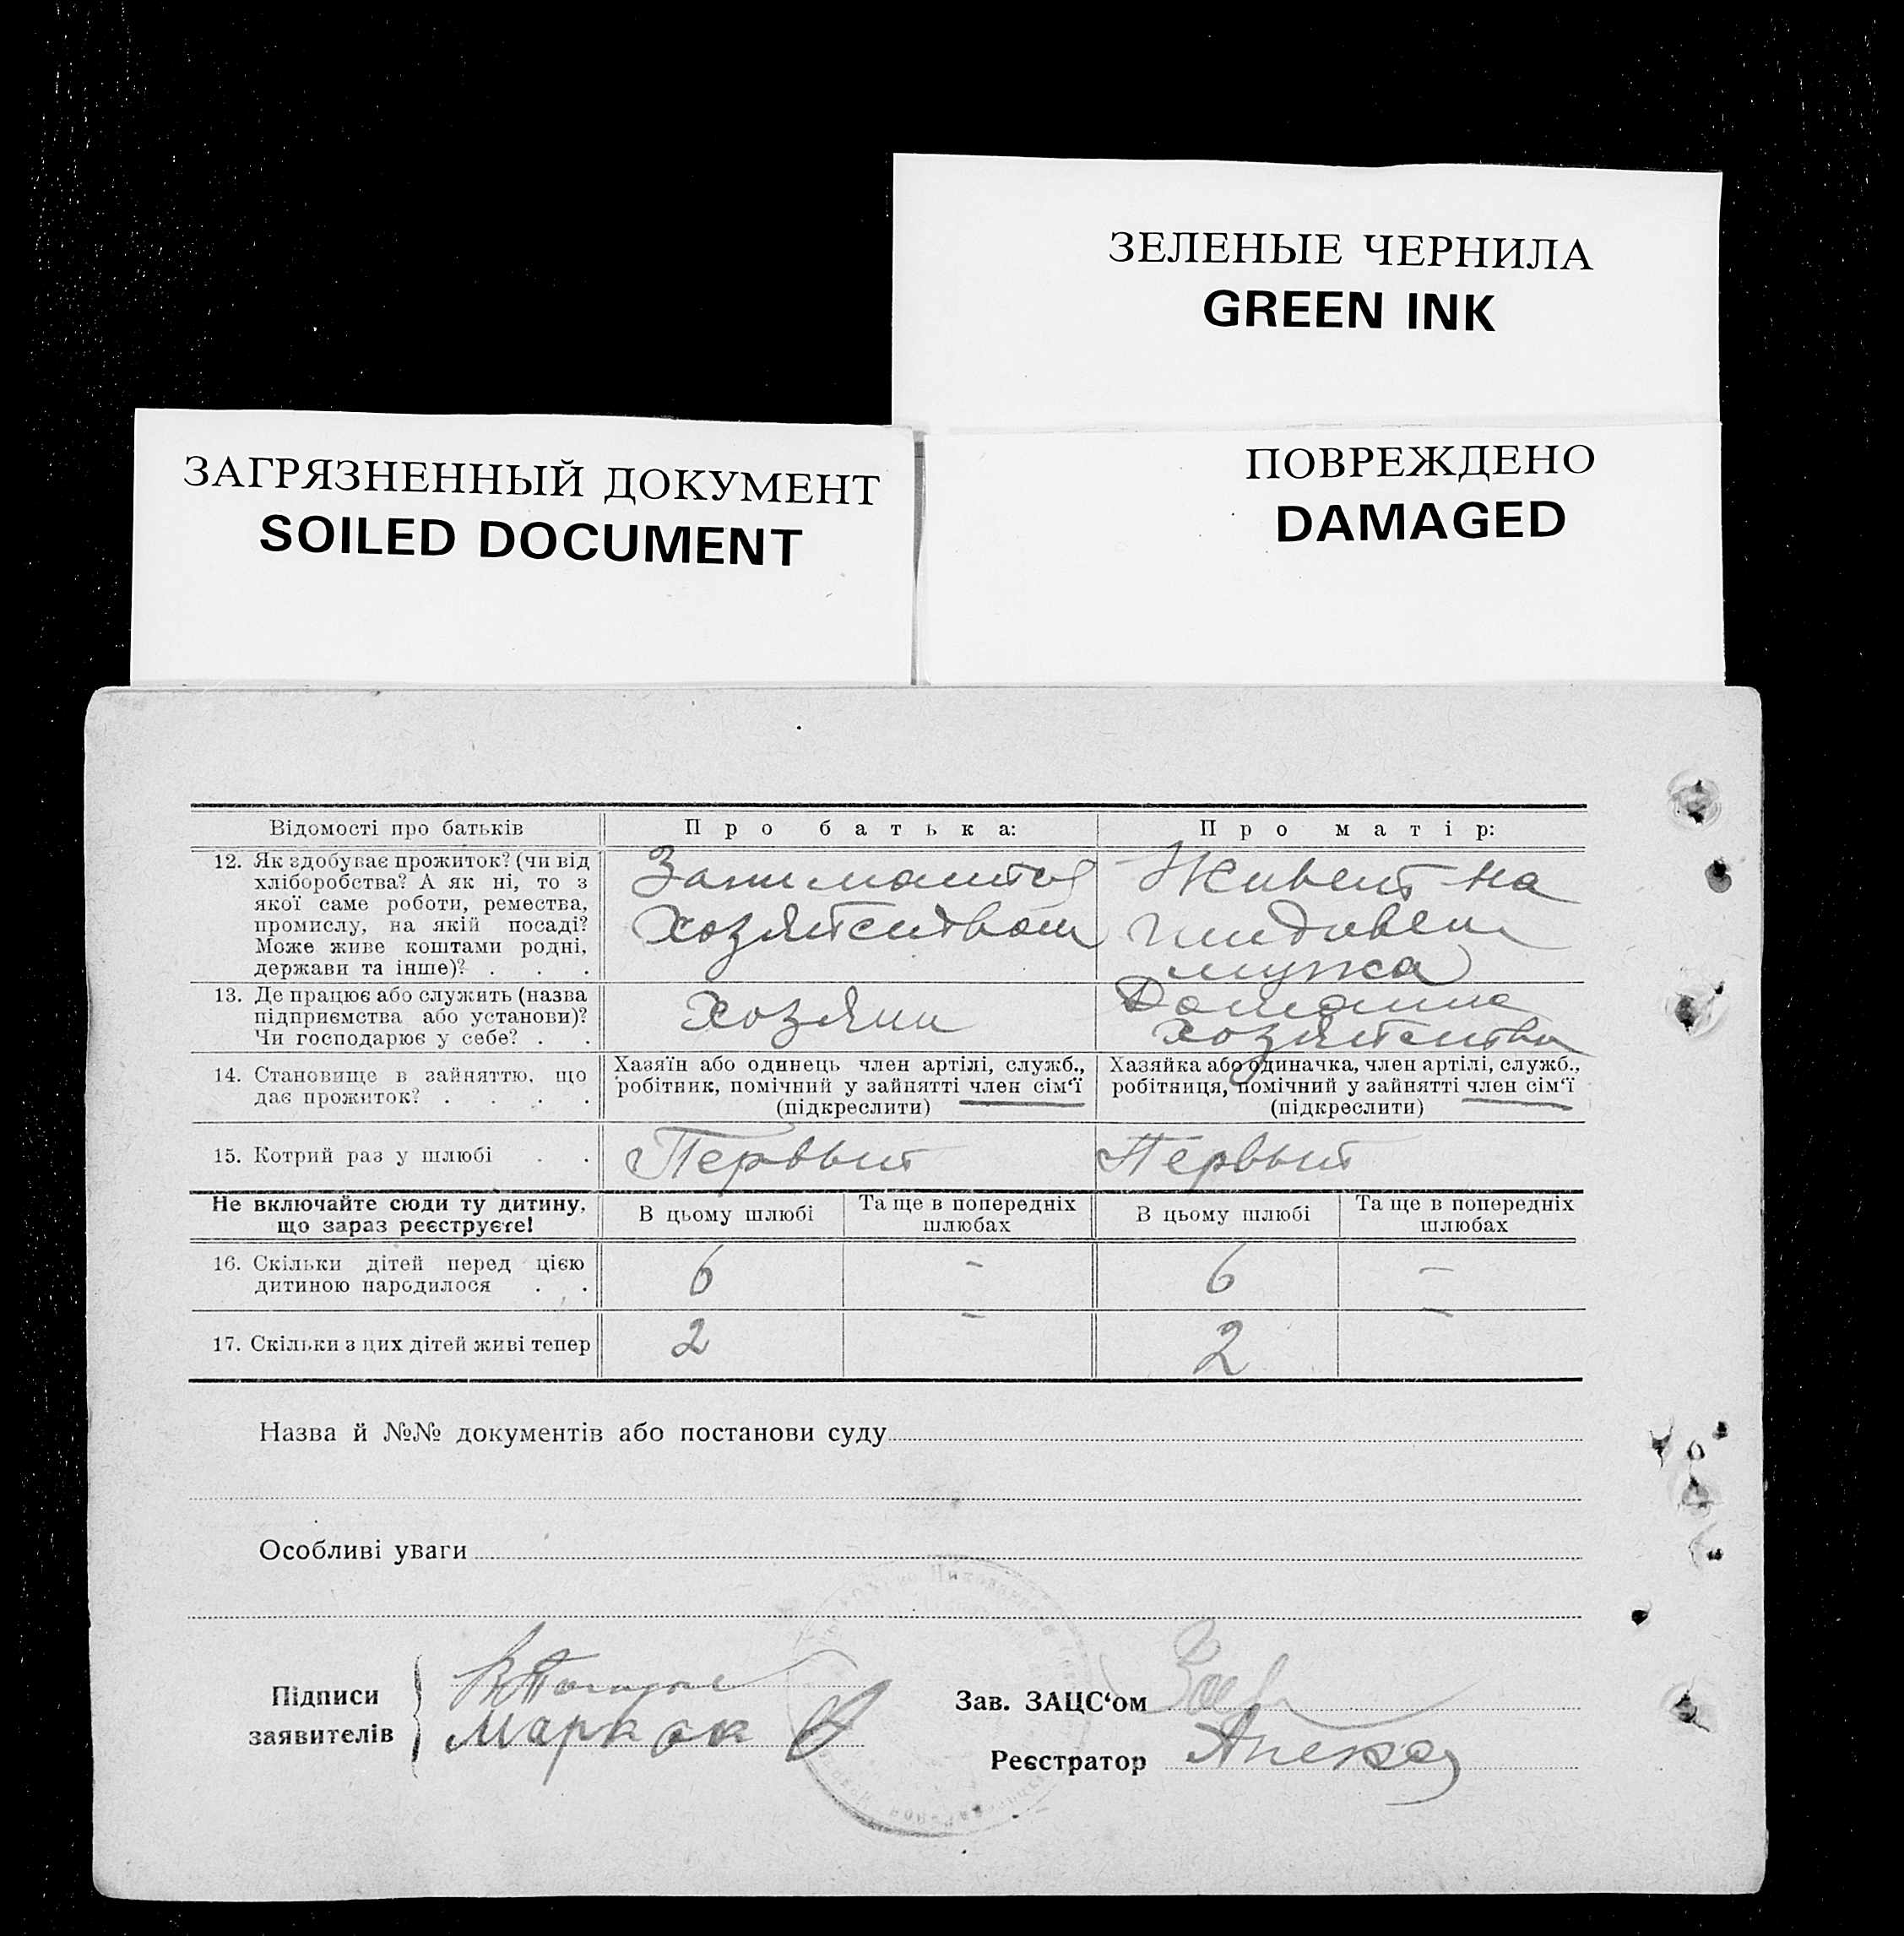 ЗЕЛЕНЫЕ ЧЕРНИЛА
GREEN INK
ЗАГРЯЗНЕННЫЙ ДОКУМЕНТ
SOILED DOCUMENT
ПОВРЕЖДЕНО
DAMAGED
Відомості про батьків
Про батька:
Про матір:
12. Як здобуває прожиток? (чи від
хліборобства? А як ні, то з
якої саме роботи, ремества,
промислу, на якій посаді?
Може живе коштами родні,
держави та інше)? . . .
Занимаится
Хозяйситвом
Живет на
иждивен
мужа
13. Де працює або служить (назва
підприємства або установи)?
Чи господарює у себе? . .
Хозяин
Домашне
хозяйситво
14. Становище в зайняттю, що
дає прожиток? . . . .
Хазяїн або одинець член артілі, служб.,
робітник, помічний у зайнятті член сім‘ї
(підкреслити)
Хазяйка або одиначка, член артілі, служб.,
робітниця, помічний у зайнятті член сім‘ї
(підкреслити)
15. Котрий раз у шлюбі . .
Первый
Первый
Не включайте сюди ту дитину,
що зараз реєструєте!
В цьому шлюбі
Та ще в попередніх
шлюбах
В цьому шлюбі
Та ще в попередніх
шлюбах
16. Скільки дітей перед цією
дитиною народилося . .
6
-
6
-
17. Скільки з цих дітей живі тепер
2
-
2
-
Назва й №№ документів або постанови суду
Особливі уваги
Підписи
заявителів
Маркок
Зав. ЗАЦС‘ом
Реєстратор